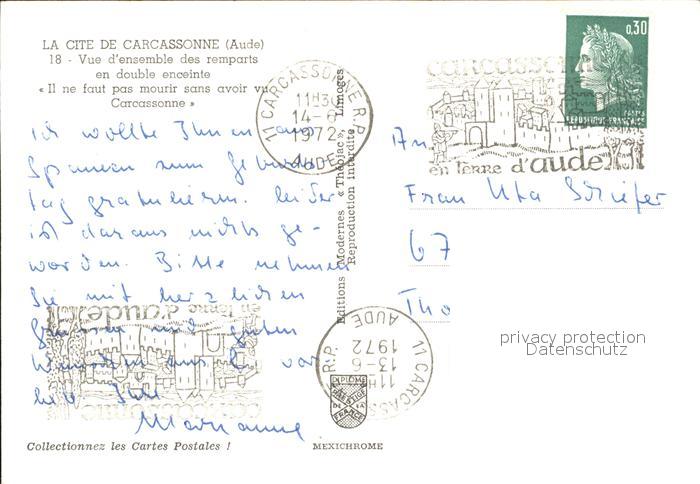 LA CITE DE CARCASSONNE (Aude)
18 - Vue d'ensemble des remparts
en double enceinte
« Il ne faut pas mourir sans avoir vu
Carcassonne »
Ich wollte Ihnen aus
Spanien zum Geburts
tag gratulieren. Leider
ist daraus nichts ge-
worden. Bitte nehmen
Sie mit herzlichen
Grüssen und guten
Wünschen aus
Ihre
Marianne
Collectionnez les Cartes Postales !
MEXICHROME
Editions Modernes « Théojac », Limoges
Reproduction interdite.
11 CARCASSONNE R.P.
11H30
14-6
1972
AUDE
carcassonne
en terre d'aude
0,30
POSTES
REPUBLIQUE FRANÇAISE
An
Frau Uta Schiefer
67
Tho
privacy protection
Datenschutz
11 CARCASSONNE R.P.
11H
13-6
1972
AUDE
carcassonne
en terre d'aude
DIPLOME
PRESTIGE
DE LA
FRANCE